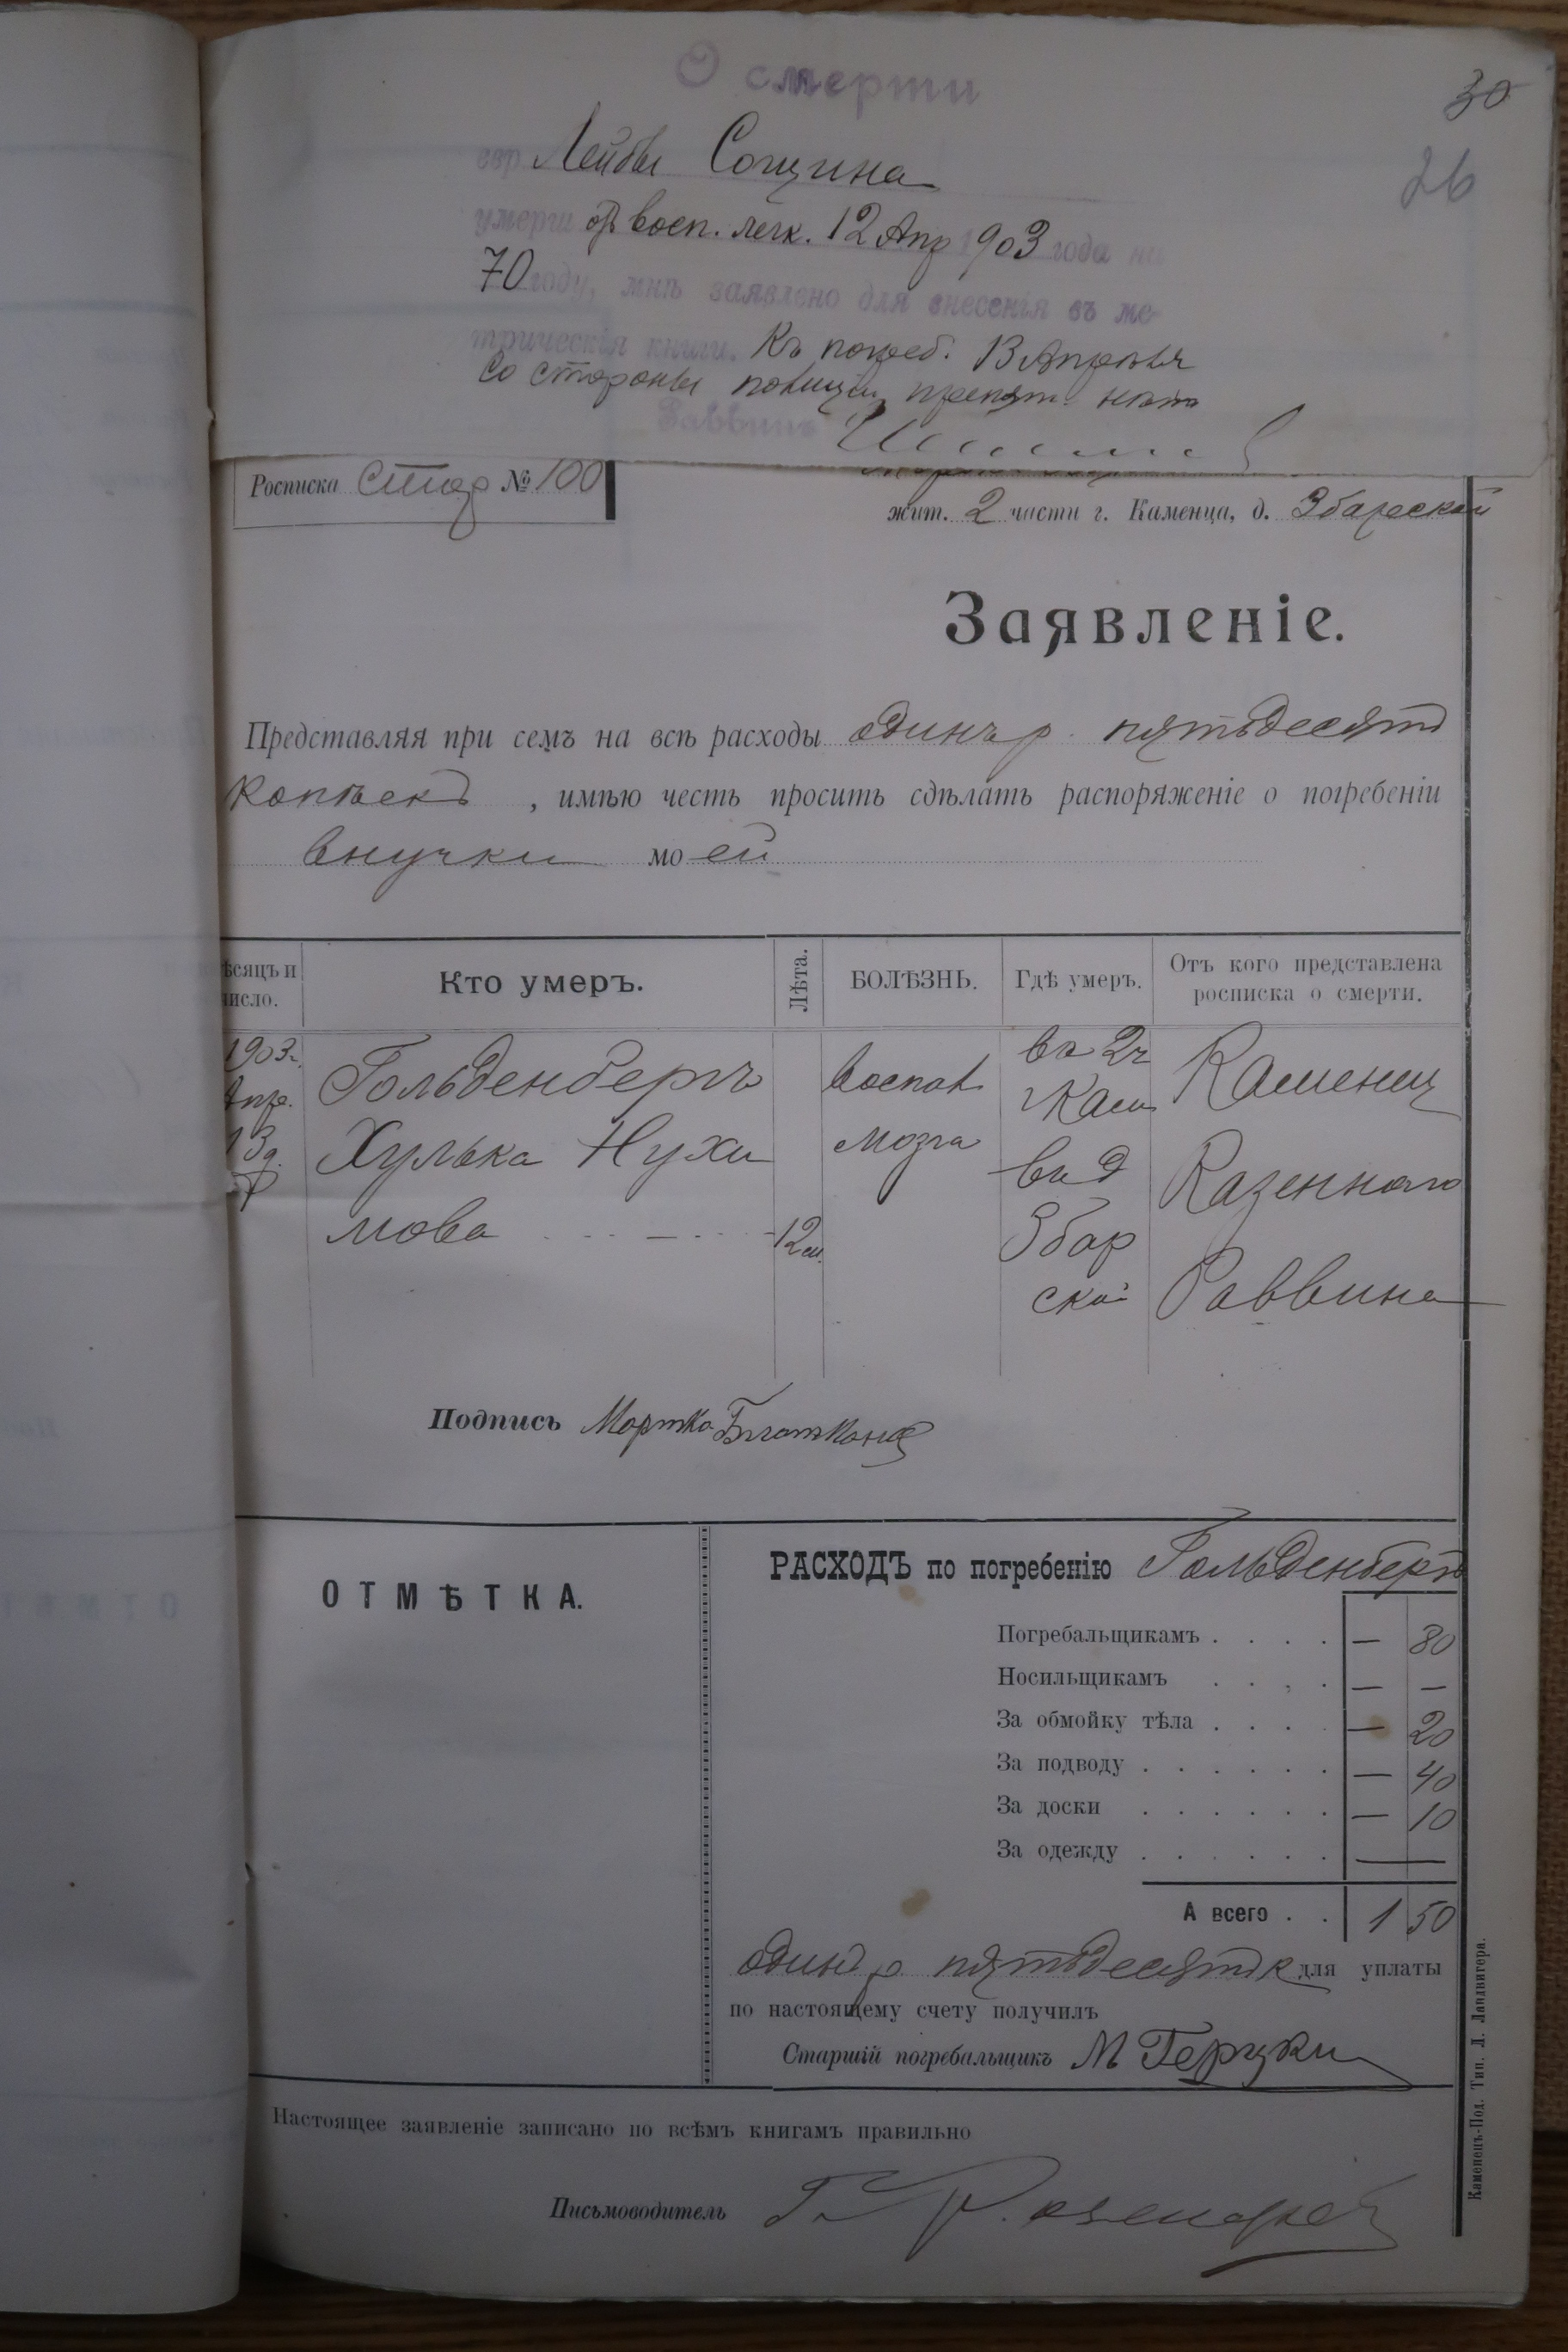 О смерти
30
26
евр. Лейбы Сощина
умерш. отъ восп. легк. 12 Апр 1903 года на
70 году, мнѣ заявлено для внесенія въ ме-
трическія книги. Къ погреб. 13 Апрѣля
Со стороны полиціи препят. нѣтъ
Раввинъ
Росписка Стар № 100
жит. 2 части г. Каменца, д. Збарской
Заявленіе.
Представляя при семъ на всѣ расходы одинъ р. пятьдесятъ
копѣекъ , имѣю честь просить сдѣлать распоряженіе о погребеніи
внучки моей
ѣсяцъ и число. Кто умеръ. Лѣта. БОЛѢЗНЬ. Гдѣ умеръ. Отъ кого представлена росписка о смерти.
1903г. Гольденбергъ воспал въ 2ч Каменец
Апр. 13 д. Хулька Нухи мозга г Кам въ д Казеннаго
мова 12 м. Збар ской Раввина
Подпись Мортко
ОТМѢТКА.
РАСХОДЪ по погребенію Гольденбергъ
Погребальщикамъ . . . . — 80
Носильщикамъ . . . . — —
За обмойку тѣла . . . . — 20
За подводу . . . . . . — 40
За доски . . . . . . — 10
За одежду . . . . . . —
А всего . . 1 50
одинъ р пятьдесятъ к для уплаты
по настоящему счету получилъ
Старшій погребальщикъ М Герцки
Настоящее заявленіе записано по всѣмъ книгамъ правильно
Письмоводитель
Каменецъ-Под. Тип. Л. Ландвигера.